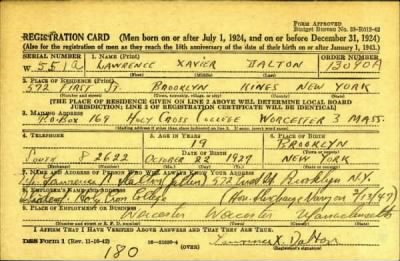 FORM APPROVED
Budget Bureau No. 33-R012-42
REGISTRATION CARD (Men born on or after July 1, 1924, and on or before December 31, 1924)
(Also for the registration of men as they reach the 18th anniversary of the date of their birth on or after January 1, 1943.)
SERIAL NUMBER 1. NAME (Print) ORDER NUMBER
W 551 A LAWRENCE XAVIER DALTON 13090A
(First) (Middle) (Last)
2. PLACE OF RESIDENCE (Print)
572 ST. BROOKLYN KINGS NEW YORK
(Number and street) (Town, township, village, or city) (County) (State)
[THE PLACE OF RESIDENCE GIVEN ON LINE 2 ABOVE WILL DETERMINE LOCAL BOARD
JURISDICTION; LINE 2 OF REGISTRATION CERTIFICATE WILL BE IDENTICAL]
3. MAILING ADDRESS
P.O. BOX 169 HOLY CROSS COLLEGE WORCESTER 3 MASS.
(Mailing address if other than place indicated on line 2. If same, insert word same)
4. TELEPHONE 5. AGE IN YEARS 6. PLACE OF BIRTH
19 BROOKLYN
DATE OF BIRTH (Town or county)
SOUTH 8 2622 OCTOBER 22 1927 NEW YORK
(Exchange) (Number) (Mo.) (Day) (Yr.) (State or country)
7. NAME AND ADDRESS OF PERSON WHO WILL ALWAYS KNOW YOUR ADDRESS
Lawrence Dalton 572 St. Brooklyn N.Y.
8. EMPLOYER'S NAME AND ADDRESS
Student Holy Cross College
9. PLACE OF EMPLOYMENT OR BUSINESS
Worcester Worcester Massachusetts
(Number and street or R. F. D. number) (Town) (County) (State)
I AFFIRM THAT I HAVE VERIFIED ABOVE ANSWERS AND THAT THEY ARE TRUE.
DSS Form 1 (Rev. 11-16-42) (OVER) Lawrence X. Dalton
(Registrant's signature)
180